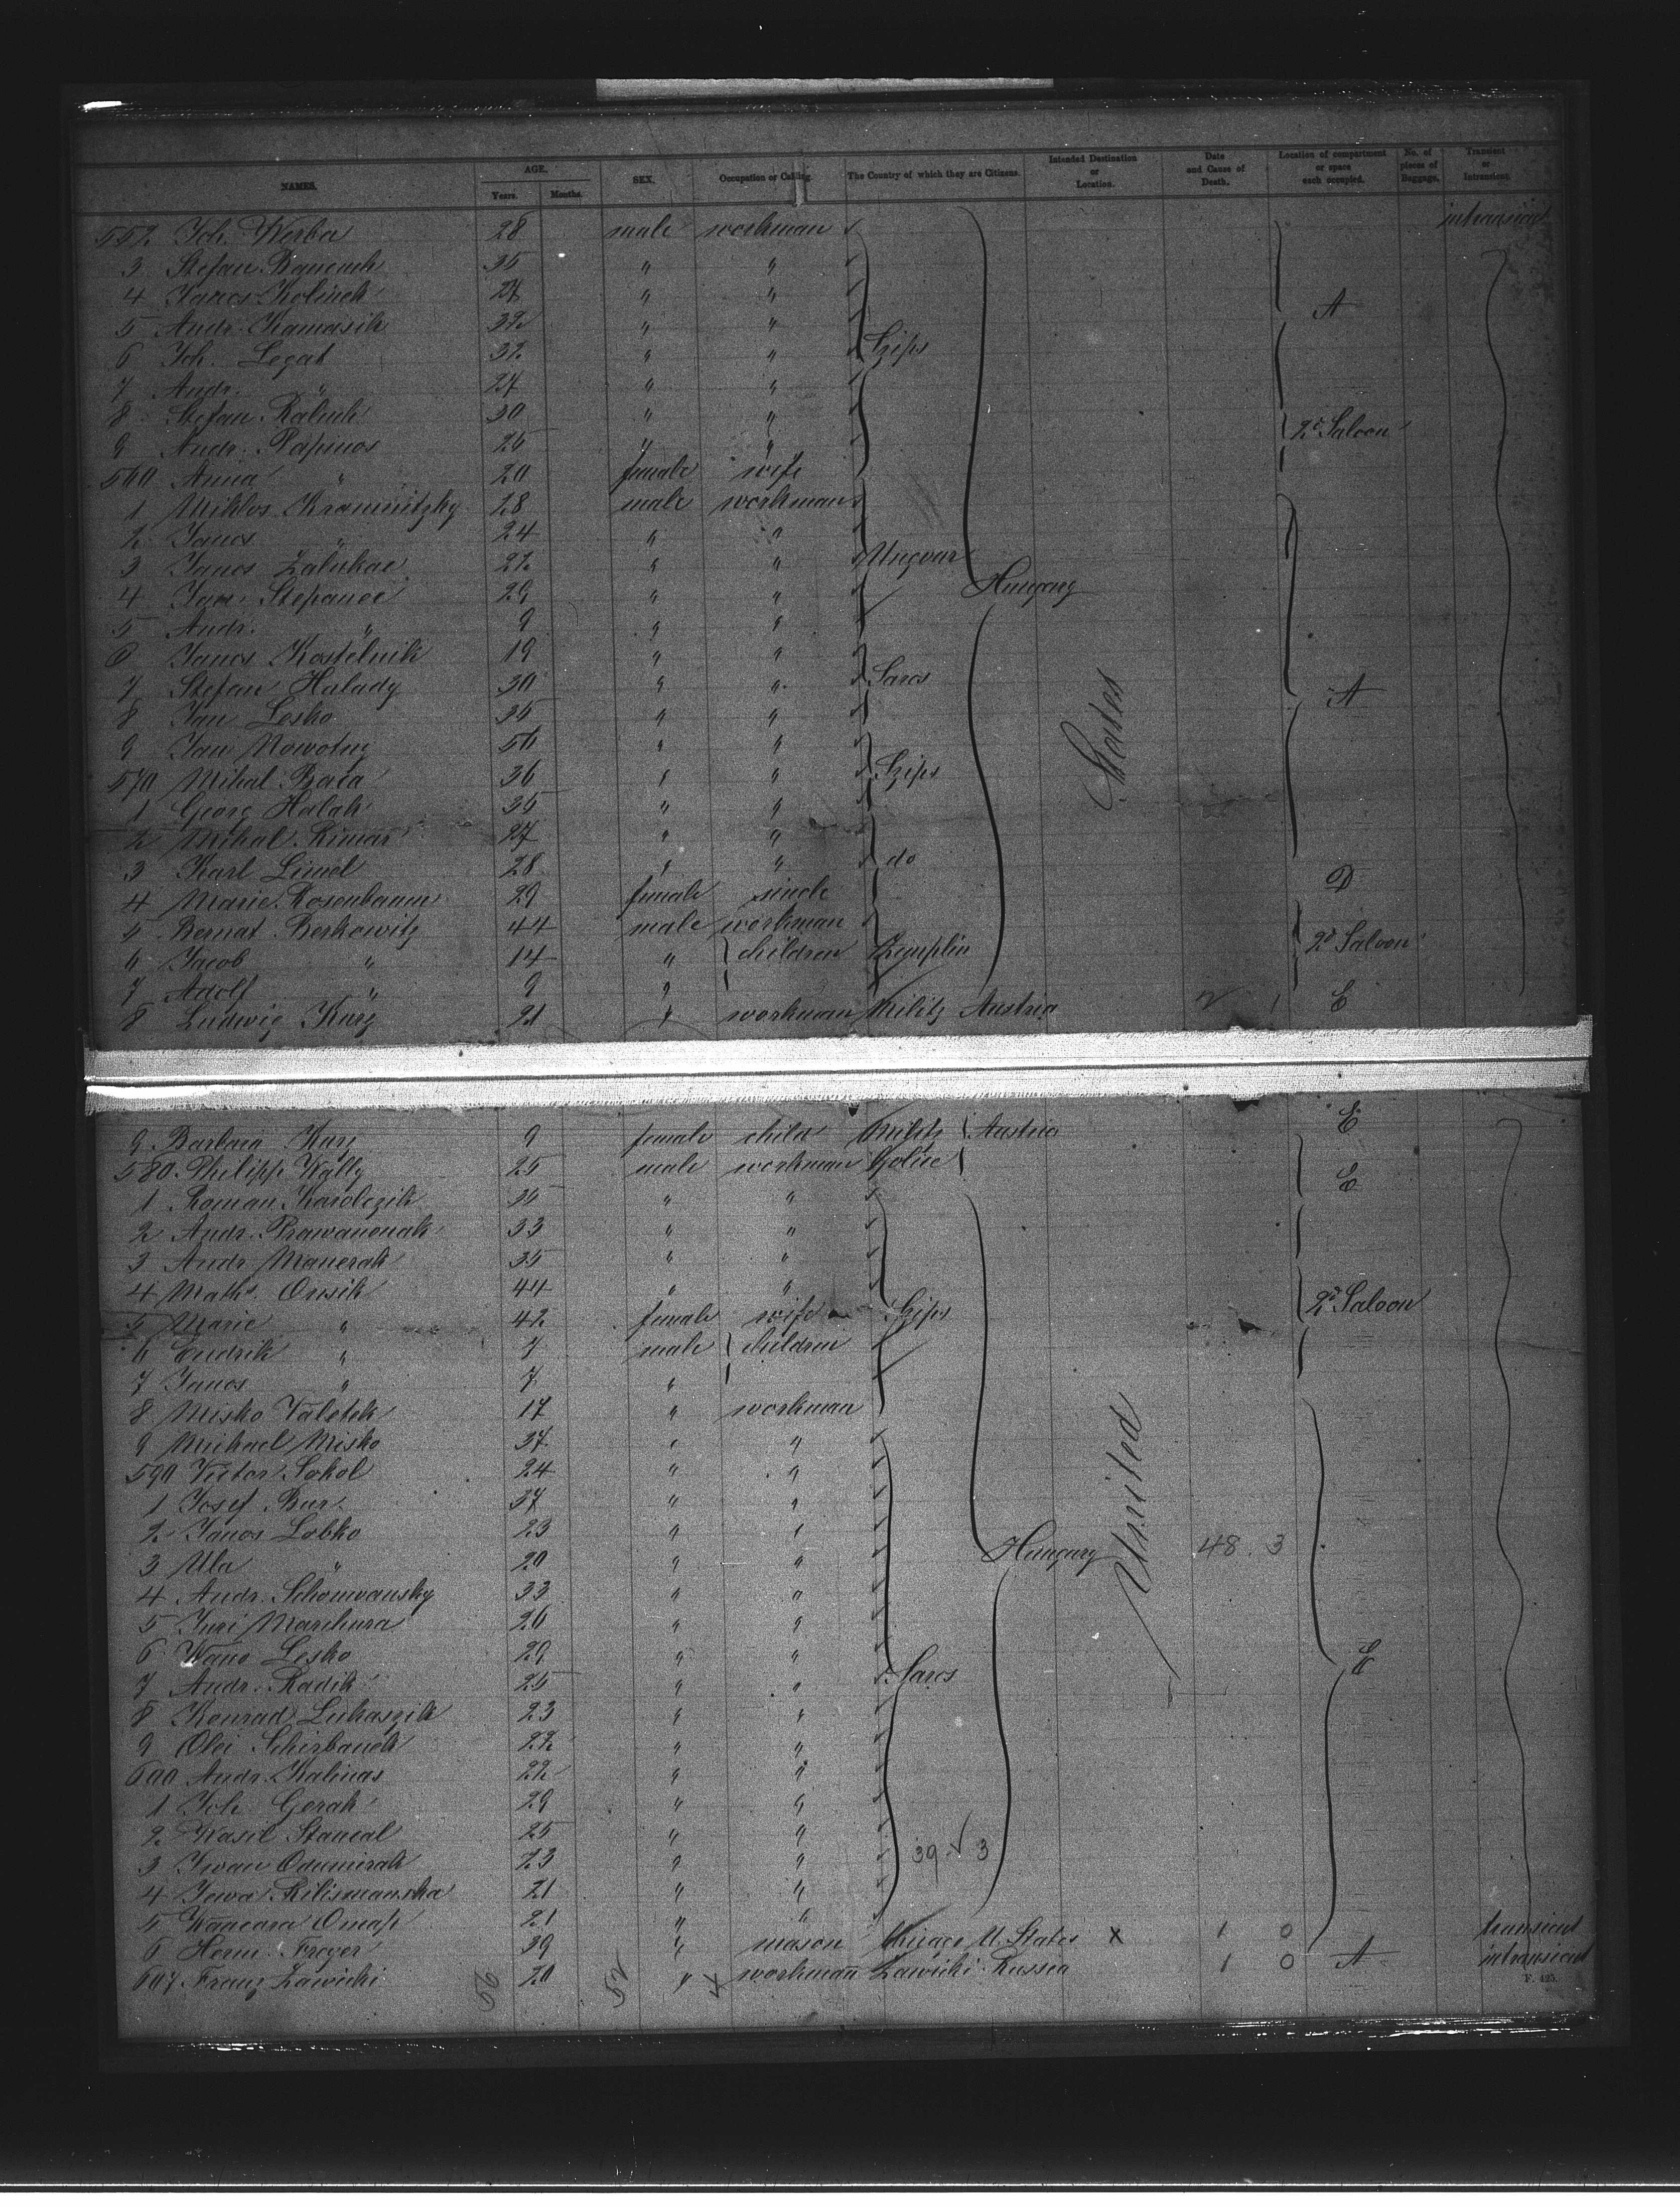 NAMES. AGE. Years. Months. SEX. Occupation or Calling. The Country of which they are Citizens. Intended Destination or Location. Date and Cause of Death. Location of compartment or space each occupied. No. of pieces of Baggage. Transient or Intransient.
552 Joh. Werba 28 male workman intransient
3 Stefan 35 " "
4 Janos Kolinek 27 " "
5 Andr. Kamasik 32 " " A
6 Joh. Legat 32 " " Zips
7 Andr. " 24 " "
8 Stefan 30 " "
9 Andr. Papinos 25 " " 2d Saloon
560 Anna " 20 female wife
1 Miklos Kramnitzky 28 male workman
2 Janos " 24 " "
3 Janos Zalukac 22 " " Ungvar
4 Jan Stepanec 29 " " Hungary
5 Andr. " 9 " "
6 Janos Kostelnik 19 " "
7 Stefan Halady 30 " " Saros A
8 Jan Lesko 35 " "
9 Jan Nowotny 50 " " States
570 Mihal Baca 36 " " Zips
1 Georg Halak 35 " "
2 Mihal Rimar 27 " "
3 Karl Limel 28 " " do
4 Marie Rosenbaum 29 female single D
5 Bernat Berkowitz 44 male workman
6 Jacob " 14 " children Zemplin 2d Saloon
7 Adolf " 9 "
8 Ludwig Kurz 21 " workman Militz Austria 2 1 E
9 Barbara Kurz 9 female child Militz Austria E
580 Philipp Wally 25 male workman E
1 Roman Karolczik 35 " "
2 Andr. 33 " "
3 Andr. Manerak 35 " "
4 Maths. Orisik 44 " "
5 Marie " 42 female wife Zips 2d Saloon
6 Endrik " 7 male children
7 Janos " 7 "
8 Misko Valetek 17 " workman
9 Michael Misko 37 " "
590 Victor Sokol 24 " "
1 Josef Bur 37 " "
2 Janos Lobko 23 " "
3 Ula " 20 " " Hungary United 48 3
4 Andr. Schomvansky 33 " "
5 Juri Marchura 26 " "
6 Wano Lesko 29 " "
7 Andr. Radik 25 " " Saros E
8 Konrad Lukaszik 23 " "
9 Olei Schirbanek 22 " "
600 Andr. Kalinas 22 " "
1 Joh. Gerak 29 " "
2 Wasil Stancal 25 " "
3 Iwan Odumirak 23 " " 39 3
4 Jewa 21 " "
5 Omap 21 " "
6 Herm. Freyer 39 " mason U. States X 1 0 transient
607 Franz Zawicki 20 " workman Zawicki Russia 1 0 A intransient
52 52 X
F. 425.